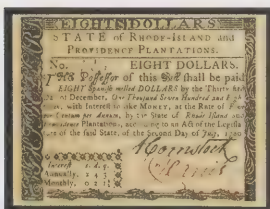 EIGHT DOLLARS
STATE of RHODE-ISLAND and
PROVIDENCE PLANTATIONS.
No. EIGHT DOLLARS.
THE Possessor of this Bill shall be paid
EIGHT Spanish milled DOLLARS by the Thirty
of December, One Thousand Seven Hundred and
with Interest in like MONEY, at the Rate of
Centum per Annum, by the State of Rhode Island and
Plantations, according to an Act of the Legisla
of the said State, of the Second Day of July, 1780
Interest s. d. q.
Annually, 2 4 3
Monthly, 0 2 1